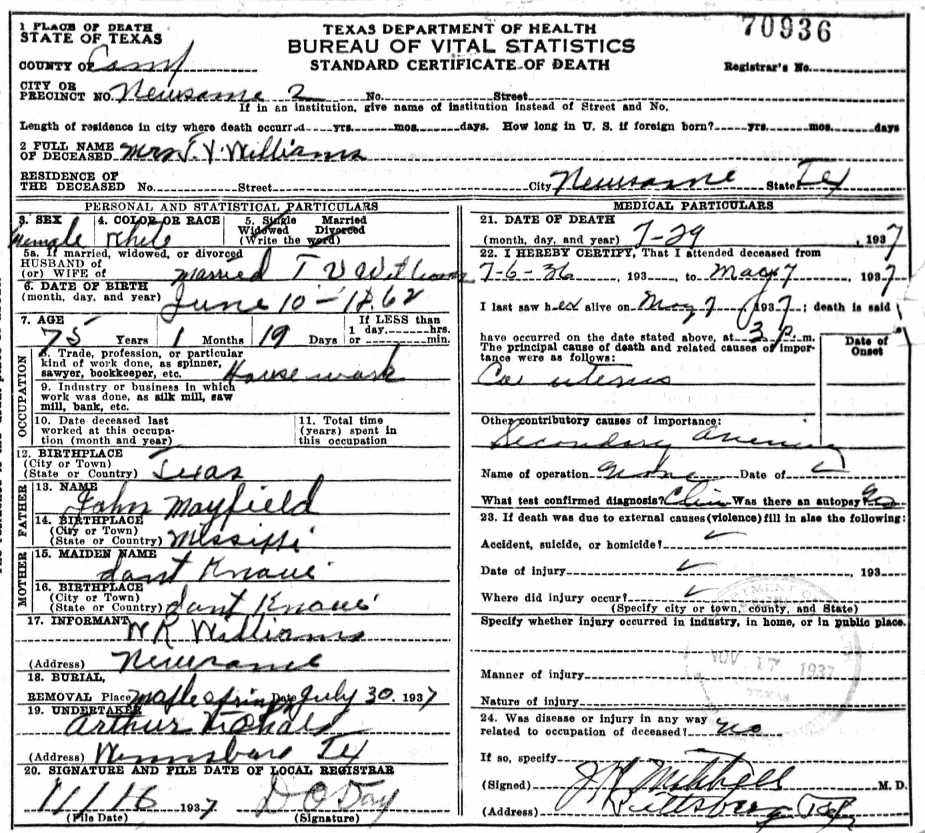 1 PLACE OF DEATH
STATE OF TEXAS
TEXAS DEPARTMENT OF HEALTH
BUREAU OF VITAL STATISTICS
STANDARD CERTIFICATE OF DEATH
70936
COUNTY OF Camp
Registrar's No.
CITY OR
PRECINCT NO. Newsome 2 No. Street
If in an institution, give name of institution instead of Street and No.
Length of residence in city where death occurred yrs. mos. days. How long in U. S. if foreign born? yrs. mos. days
2 FULL NAME
OF DECEASED Mrs T. V. Williams
RESIDENCE OF
THE DECEASED No. Street City Newsome State Tex
PERSONAL AND STATISTICAL PARTICULARS
3. SEX 4. COLOR OR RACE 5. Single Married
Widowed Divorced
(Write the word)
Female White
5a. If married, widowed, or divorced
HUSBAND OF
(or) WIFE of Married T V Williams
6. DATE OF BIRTH
(month, day, and year) June 10-1862
7. AGE If LESS than
75 Years 1 Months 19 Days 1 day, hrs.
or min.
OCCUPATION
8. Trade, profession, or particular
kind of work done, as spinner,
sawyer, bookkeeper, etc. House work
9. Industry or business in which
work was done, as silk mill, saw
mill, bank, etc.
10. Date deceased last
worked at this occupa-
tion (month and year)
11. Total time
(years) spent in
this occupation
12. BIRTHPLACE
(City or Town)
(State or Country) Texas
FATHER
13. NAME
John Mayfield
14. BIRTHPLACE
(City or Town)
(State or Country) Missippi
MOTHER
15. MAIDEN NAME
dant Knaue
16. BIRTHPLACE
(City or Town)
(State or Country) dant Knaue
17. INFORMANT W R Williams
(Address) Newsome
18. BURIAL,
REMOVAL Place Maple springs Date July 30. 1937
19. UNDERTAKER
Arthur Nichols
(Address) Winnsboro Tex
20. SIGNATURE AND FILE DATE OF LOCAL REGISTRAR
11/16 1937 D O Day
(File Date) (Signature)
MEDICAL PARTICULARS
21. DATE OF DEATH
(month, day, and year) 7-29, 1937
22. I HEREBY CERTIFY, That I attended deceased from
7-6-36, 193 to May 7 1937
I last saw her alive on May 7, 1937; death is said
have occurred on the date stated above, at 3 p. m.
The principal cause of death and related causes of impor-
tance were as follows:
Date of
Onset
Ca uterus
Other contributory causes of importance:
Secondary anemia
Name of operation None Date of
What test confirmed diagnosis? Clin Was there an autopsy
23. If death was due to external causes (violence) fill in also the following:
Accident, suicide, or homicide?
Date of injury , 193
Where did injury occur?
(Specify city or town, county, and State)
Specify whether injury occurred in industry, in home, or in public place.
NOV 17 1937
Manner of injury
Nature of injury
24. Was disease or injury in any way
related to occupation of deceased? no
If so, specify
(Signed) J H Mitchell M. D.
(Address) Pittsburg Tex